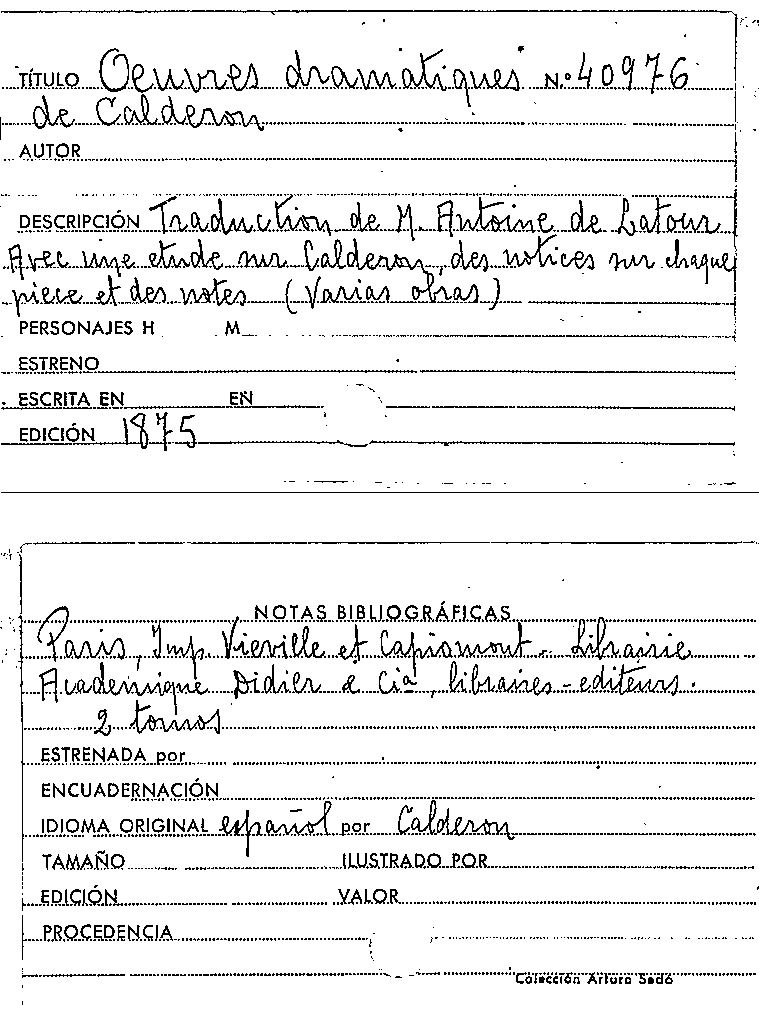 TÍTULO Oeuvres dramatiques N.º 40976
de Calderon
AUTOR
DESCRIPCIÓN Traduction de M. Antoine de Latour
Avec une etude sur Calderon, des notices sur chaque
piece et des notes (Varias obras)
PERSONAJES H M
ESTRENO
ESCRITA EN EN
EDICIÓN 1875
NOTAS BIBLIOGRÁFICAS
Paris, Imp. Vieville et Capiomont - Librairie
Academique Didier & Cia, libraires-editeurs.
2 tomos
ESTRENADA por
ENCUADERNACIÓN
IDIOMA ORIGINAL español por Calderon
TAMAÑO ILUSTRADO POR
EDICIÓN VALOR
PROCEDENCIA
Colección Arturo Sedó